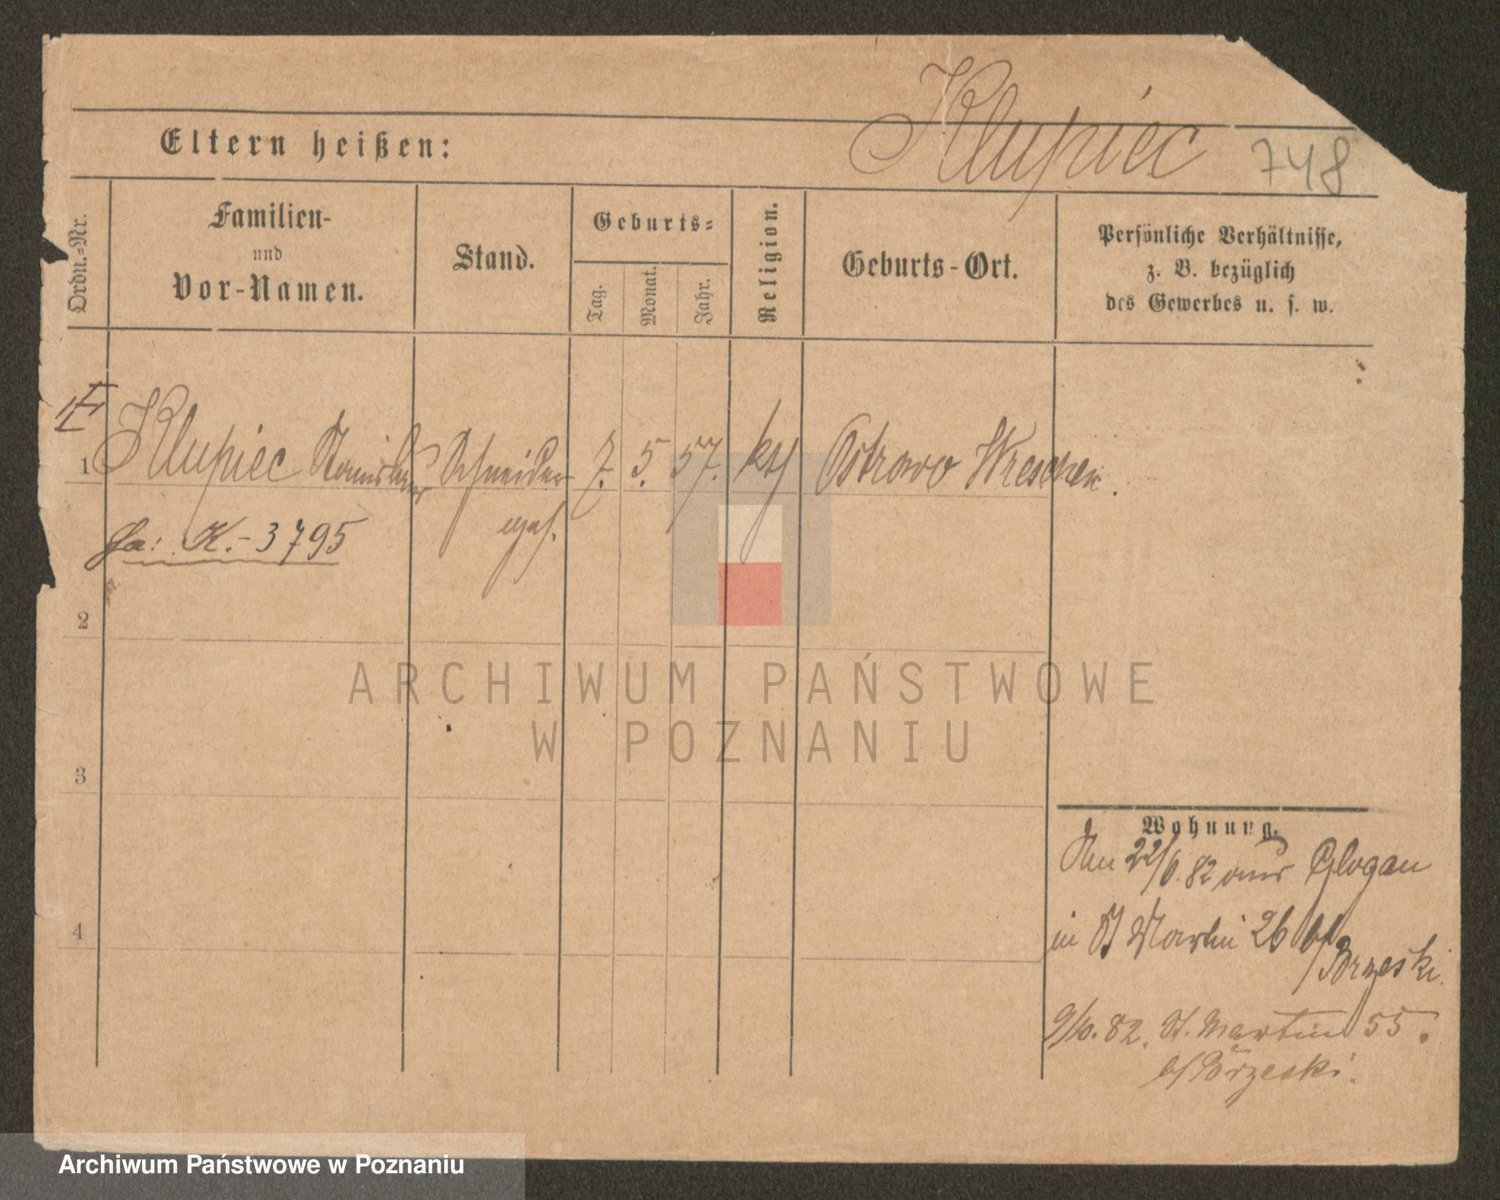 Klupiec 748
Eltern heißen:
Ordn.-Nr.
Familien-
und
Vor-Namen.
Stand.
Geburts-
Tag.
Monat.
Jahr.
Religion.
Geburts-Ort.
Persönliche Verhältnisse,
z. B. bezüglich
des Gewerbes u. s. w.
1 Klupiec Stanislaus Schneider 7. 5. 57. kth Ostrowo Wreschen.
K.-3795
2
3
4
Wohnung.
Den 22/6.82 aus Glogau
in St Martin 26 b/
Brzeski.
82. St. Martin 55.
b/ Brzeski.
ARCHIWUM PAŃSTWOWE
W POZNANIU
Archiwum Państwowe w Poznaniu